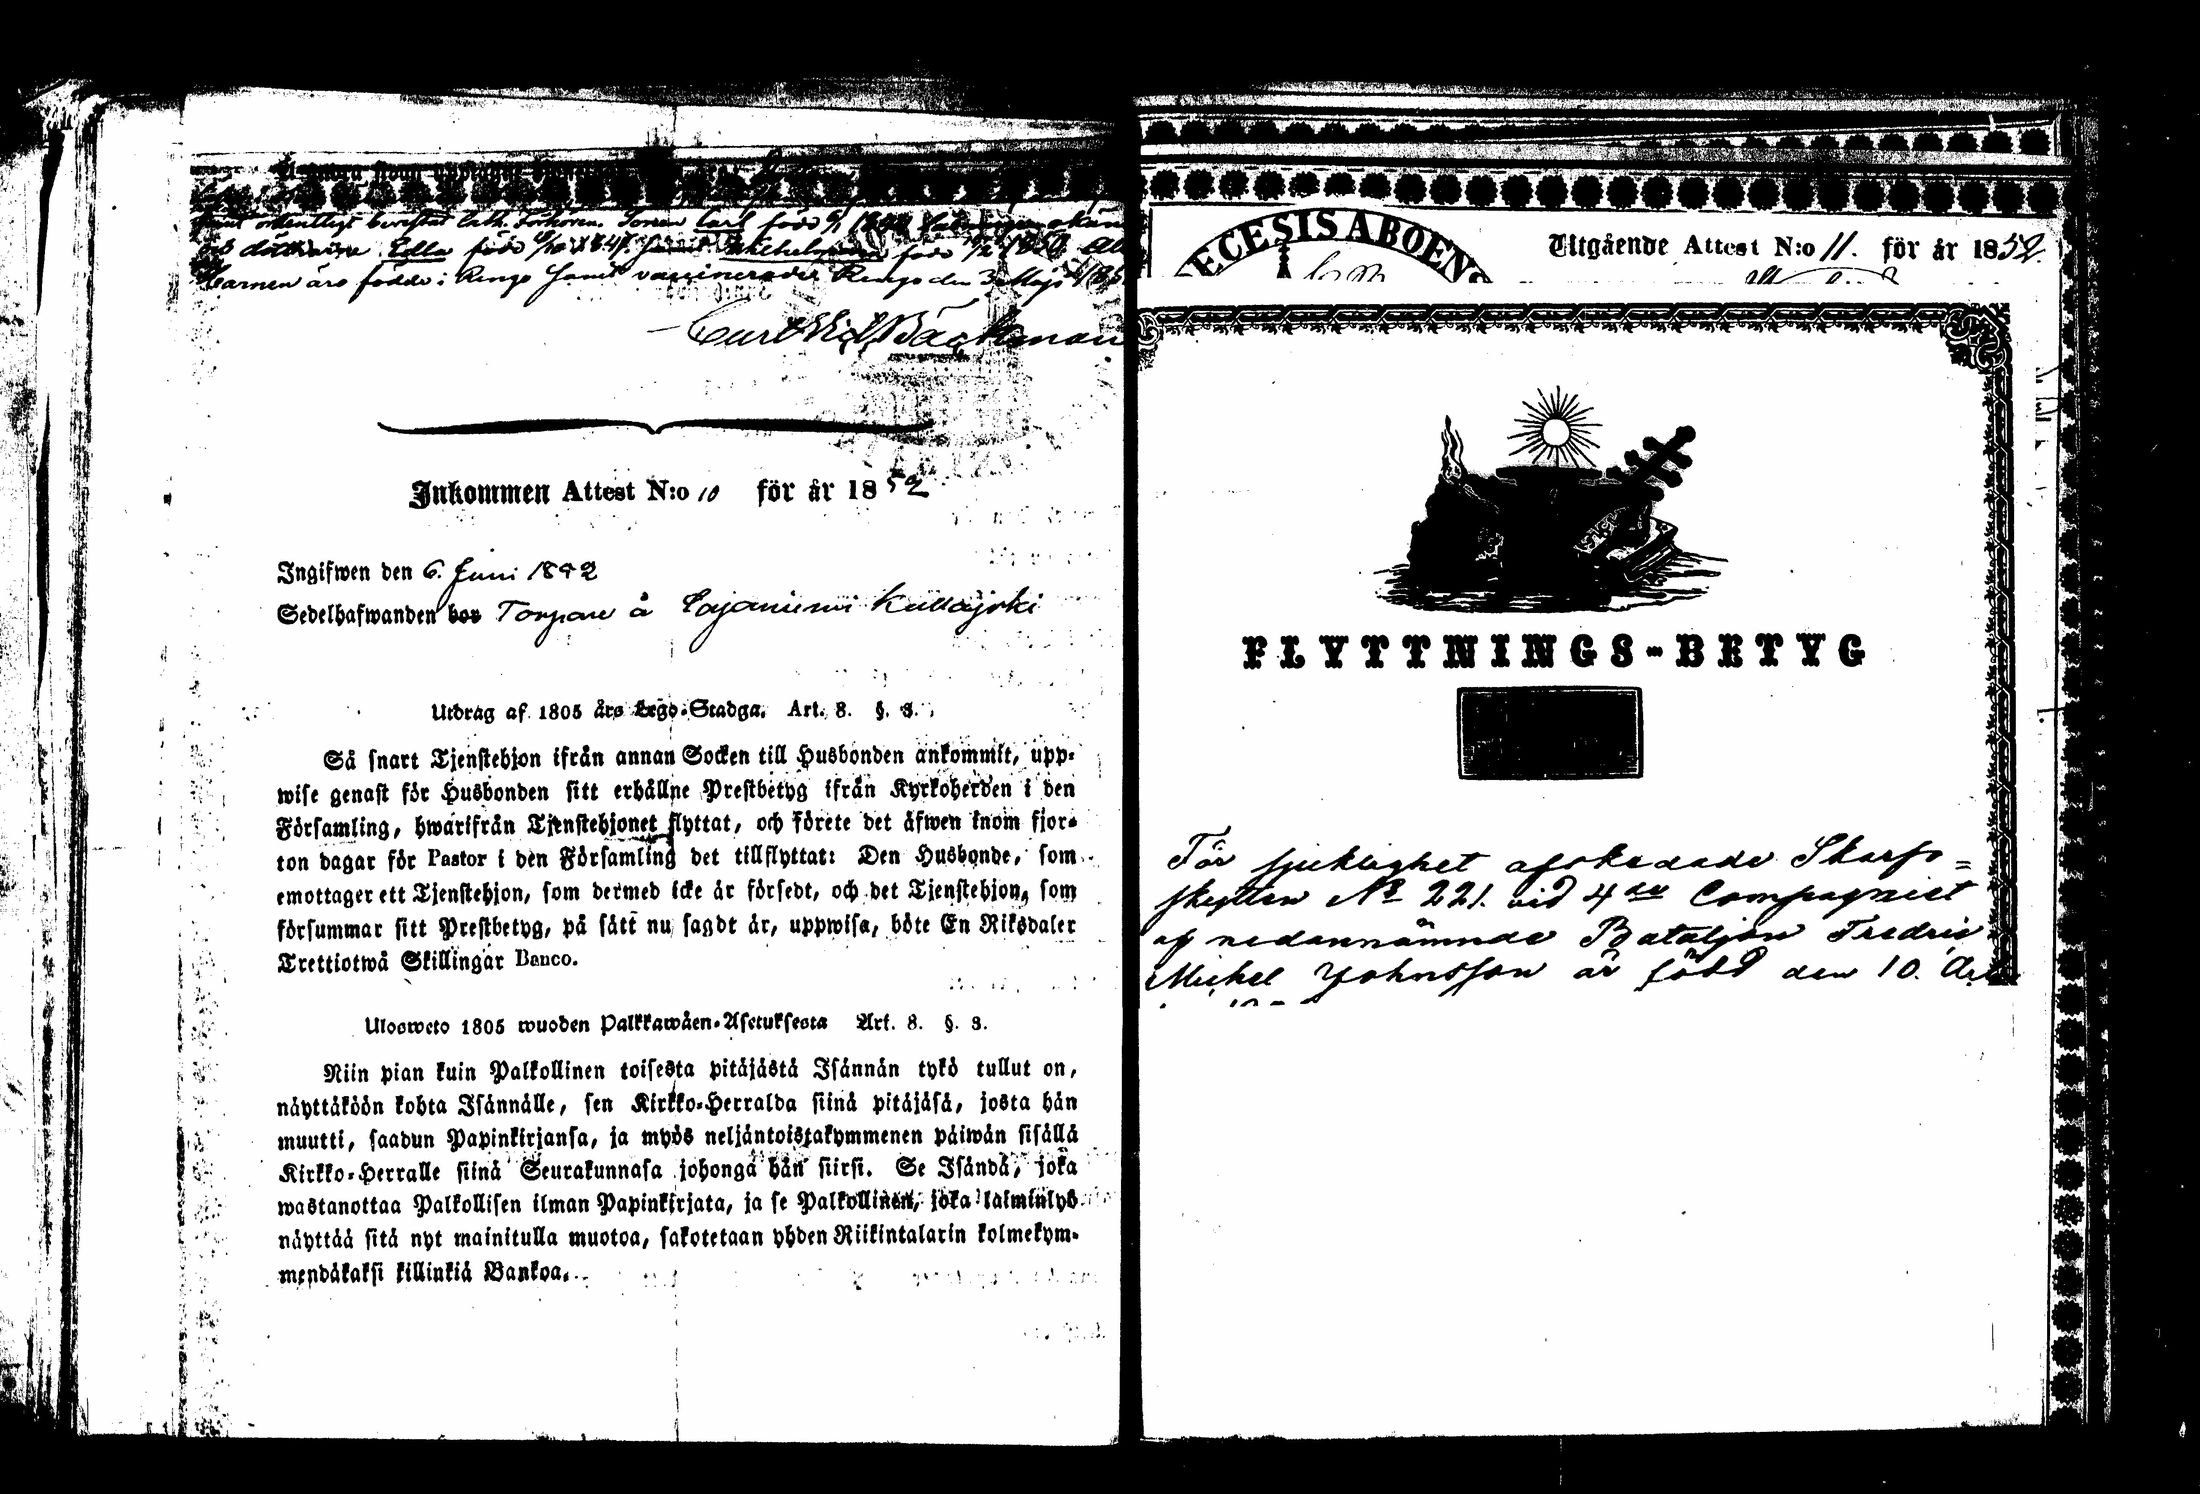 samt ordentligt bevistat Cath. Förhören. Sonen Carl född 6/1 1844
och döttrarne Edla född 1847 samt Wilhelmina född 1850. Alla
Barnen äro födde i Rengo samt vaccinerade. Rengo den 3 Maji 185
Carl Bäckman
Inkommen Attest N:o 10 för år 1852
Ingifwen den 6. Juni 1852
Sedelhafwanden hos Torpare å Lajaniemi
Utdrag af 1805 års Lego-Stadga. Art. 8. §. 3.
Så snart Tjenstehjon ifrån annan Socken till Husbonden ankommit, upp-
wise genast för Husbonden sitt erhållne Prestbetyg ifrån Kyrkoherden i den
Församling, hwarifrån Tjenstehjonet flyttat, och förete det äfwen inom fjor-
ton dagar för Pastor i den Församling det tillflyttat: Den Husbonde, som
emottager ett Tjenstehjon, som dermed icke är försedt, och det Tjenstehjon, som
försummar sitt Prestbetyg, på sätt nu sagdt är, uppwisa, böte En Riksdaler
Trettiotwå Skillingar Banco.
Ulosweto 1805 wuoden Palkkawäen-Asetuksesta Art. 8. §. 3.
Niin pian kuin Palkollinen toisesta pitäjästä Isännän tykö tullut on,
näyttäköön kohta Isännälle, sen Kirkko-Herralda siinä pitäjäsä, josta hän
muutti, saadun Papinkirjansa, ja myös neljäntoistakymmenen päiwän sisällä
Kirkko-Herralle siinä Seurakunnasa johonga hän siirsi. Se Isändä, joka
wastanottaa Palkollisen ilman Papinkirjata, ja se Palkollinen, joka laiminlyö
näyttää sitä nyt mainitulla muotoa, sakotetaan yhden Riikintalarin kolmekym-
mendäkaksi killinkiä Bankoa.
ECESIS ABOENS
Utgående Attest N:o 11. för år 1852.
FLYTTNINGS-BETYG
För sjuklighet afskedade Skarps=
skytten No 221. vid 4de Compagniet
af nedannämnde Bataljon Fredric
Michel Johnsson är född den 10.